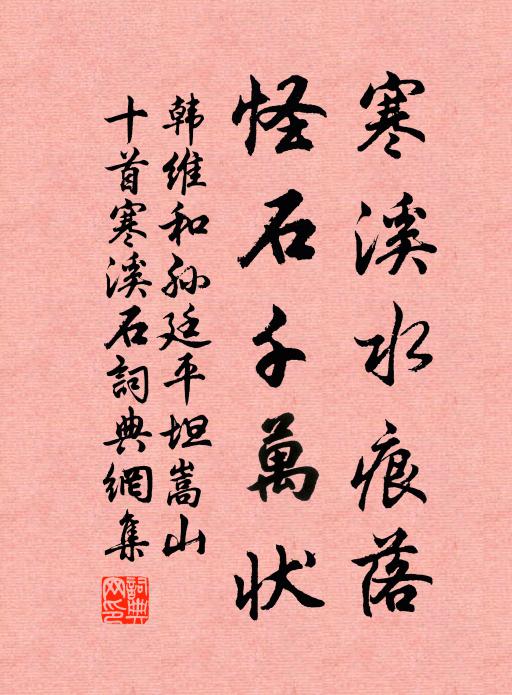 寒溪水痕落
怪石千萬狀
韩维和孙廷平坦嵩山
十首寒溪石詞典網集
詞典网印